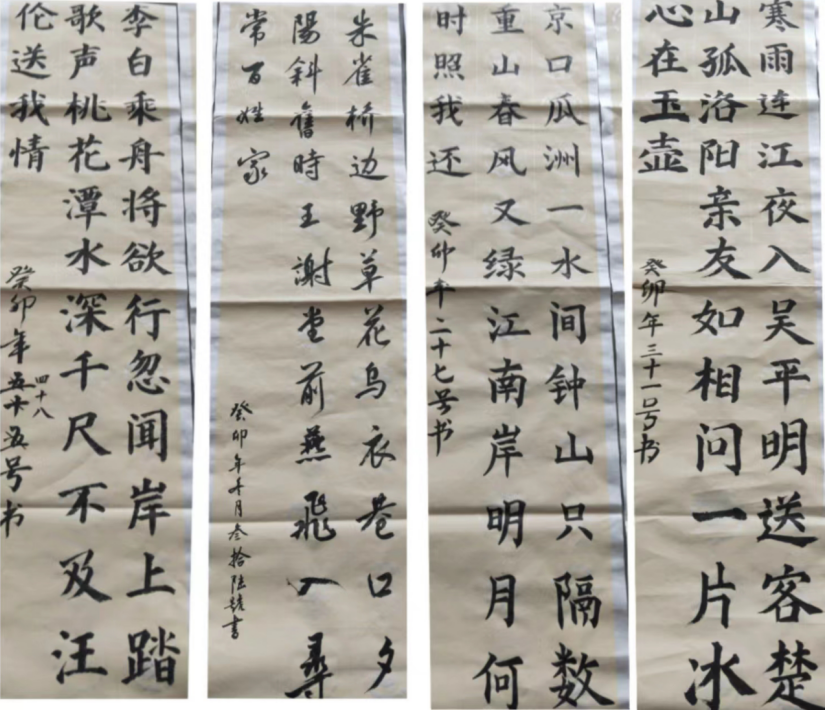 寒雨连江夜入吴平明送客楚
山孤洛阳亲友如相问一片冰
心在玉壶
癸卯年三十一号书
京口瓜洲一水间钟山只隔数
重山春风又绿江南岸明月何
时照我还
癸卯年二十七号书
朱雀桥边野草花乌衣巷口夕
陽斜舊時王謝堂前燕飛入尋
常百姓家
癸卯年月叁拾陆號書
李白乘舟将欲行忽闻岸上踏
歌声桃花潭水深千尺不及汪
伦送我情
四十八
癸卯年五十五号书